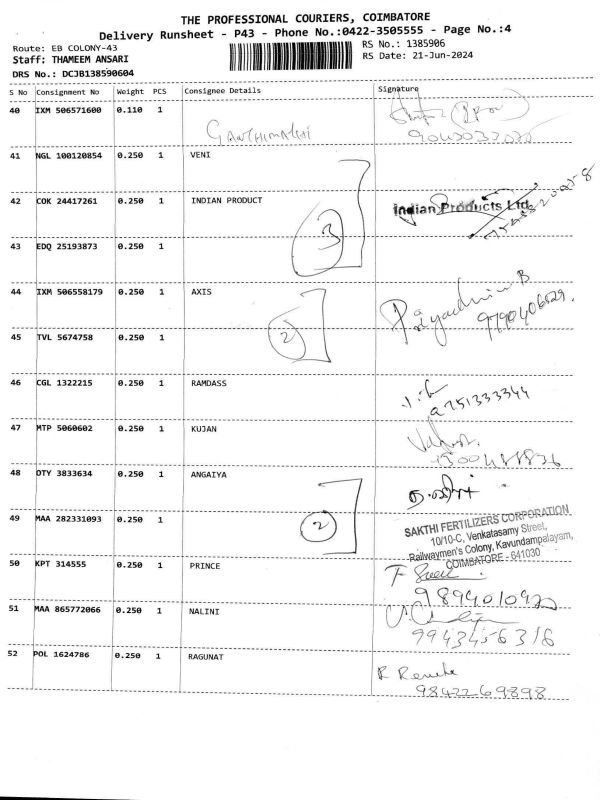 THE PROFESSIONAL COURIERS, COIMBATORE
Delivery Runsheet - P43 - Phone No.:0422-3505555 - Page No.:4
Route: EB COLONY-43
RS No.: 1385906
Staff: THAMEEM ANSARI
RS Date: 21-Jun-2024
DRS No.: DCJB138590604
S No Consignment No Weight PCS Consignee Details Signature
40 IXM 506571600 0.110 1
GANTHIMATHI
41 NGL 100120854 0.250 1 VENI
42 COK 24417261 0.250 1 INDIAN PRODUCT
Indian Products Ltd
3
43 EDQ 25193873 0.250 1
44 IXM 506558179 0.250 1 AXIS
Priyadharsini B
9790406029.
2
45 TVL 5674758 0.250 1
46 CGL 1322215 0.250 1 RAMDASS
9751333344
47 MTP 5060602 0.250 1 KUJAN
48 OTY 3833634 0.250 1 ANGAIYA
2
49 MAA 282331093 0.250 1
SAKTHI FERTILIZERS CORPORATION
10/10-C, Venkatasamy Street,
Railwaymen's Colony, Kavundampalayam,
COIMBATORE - 641030
50 KPT 314555 0.250 1 PRINCE
51 MAA 865772066 0.250 1 NALINI
9943456316
52 POL 1624786 0.250 1 RAGUNAT
R Renuka
9842269898